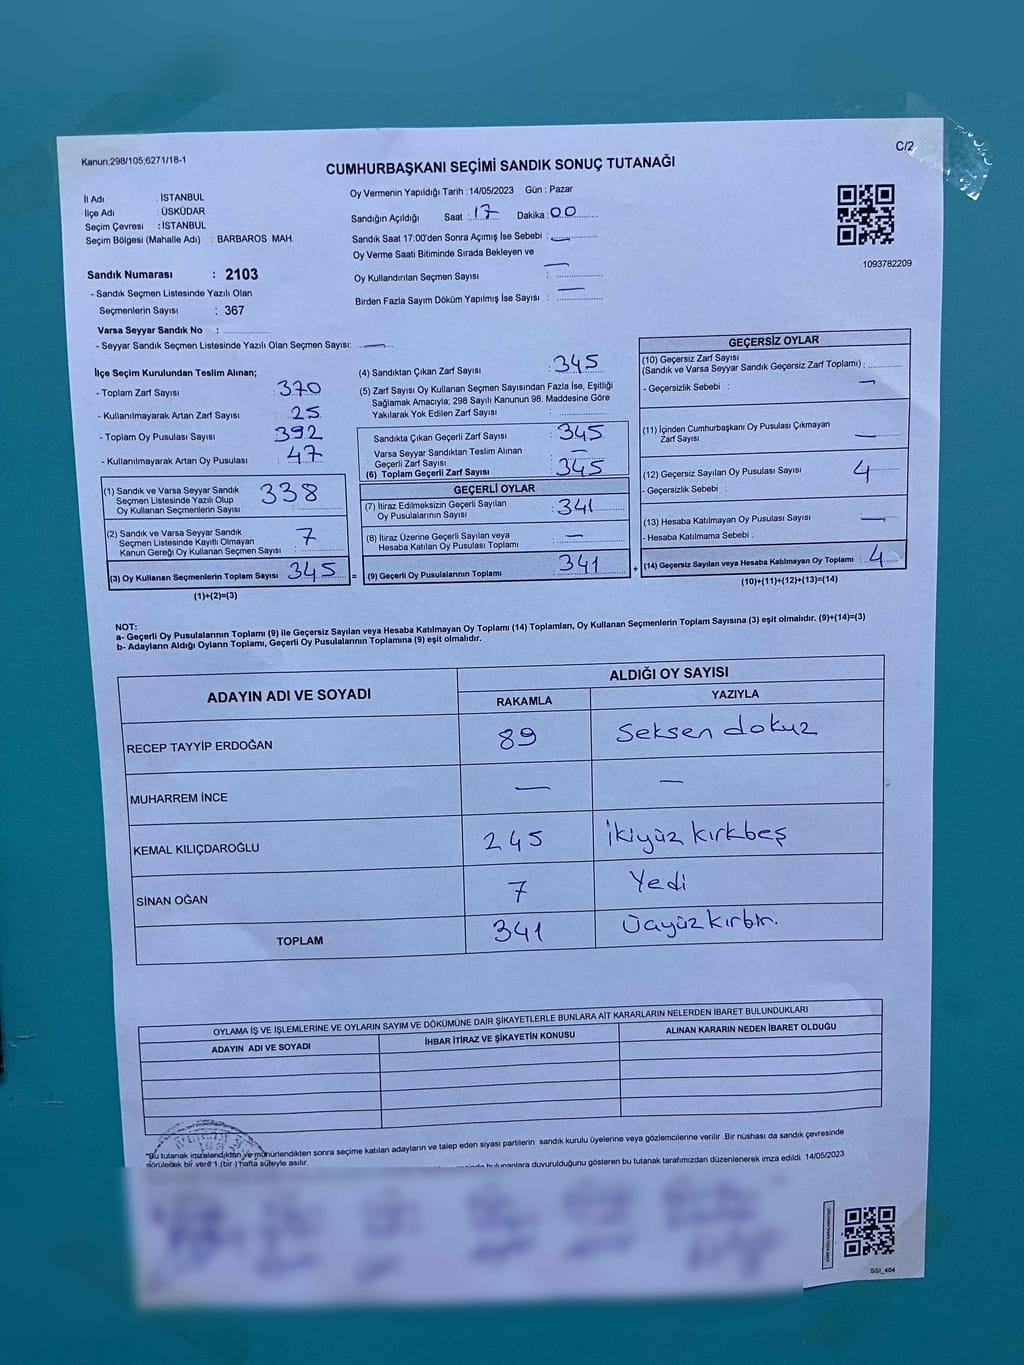 Kanun;298/105;6271/18-1
C/2
CUMHURBAŞKANI SEÇİMİ SANDIK SONUÇ TUTANAĞI
İl Adı : İSTANBUL
İlçe Adı : ÜSKÜDAR
Seçim Çevresi : İSTANBUL
Seçim Bölgesi (Mahalle Adı) : BARBAROS MAH.
Sandık Numarası : 2103
- Sandık Seçmen Listesinde Yazılı Olan
Seçmenlerin Sayısı : 367
Varsa Seyyar Sandık No :
- Seyyar Sandık Seçmen Listesinde Yazılı Olan Seçmen Sayısı: —
Oy Vermenin Yapıldığı Tarih :14/05/2023 Gün : Pazar
Sandığın Açıldığı Saat : 17 Dakika : 00
Sandık Saat 17:00'den Sonra Açımış İse Sebebi : —
Oy Verme Saati Bitiminde Sırada Bekleyen ve —
Oy Kullandırılan Seçmen Sayısı :
Birden Fazla Sayım Döküm Yapılmış İse Sayısı : —
1093782209
İlçe Seçim Kurulundan Teslim Alınan;
- Toplam Zarf Sayısı : 370
- Kullanılmayarak Artan Zarf Sayısı : 25
- Toplam Oy Pusulası Sayısı : 392
- Kullanılmayarak Artan Oy Pusulası : 47
(1) Sandık ve Varsa Seyyar Sandık
Seçmen Listesinde Yazılı Olup
Oy Kullanan Seçmenlerin Sayısı : 338
(2) Sandık ve Varsa Seyyar Sandık
Seçmen Listesinde Kayıtlı Olmayan
Kanun Gereği Oy Kullanan Seçmen Sayısı : 7
(3) Oy Kullanan Seçmenlerin Toplam Sayısı : 345
(1)+(2)=(3)
(4) Sandıktan Çıkan Zarf Sayısı : 345
(5) Zarf Sayısı Oy Kullanan Seçmen Sayısından Fazla İse, Eşitliği
Sağlamak Amacıyla; 298 Sayılı Kanunun 98. Maddesine Göre
Yakılarak Yok Edilen Zarf Sayısı :
Sandıkta Çıkan Geçerli Zarf Sayısı : 345
Varsa Seyyar Sandıktan Teslim Alınan
Geçerli Zarf Sayısı : —
(6) Toplam Geçerli Zarf Sayısı : 345
GEÇERLİ OYLAR
(7) İtiraz Edilmeksizin Geçerli Sayılan
Oy Pusulalarının Sayısı : 341
(8) İtiraz Üzerine Geçerli Sayılan veya
Hesaba Katılan Oy Pusulası Toplamı : —
= (9) Geçerli Oy Pusulalarının Toplamı : 341
GEÇERSİZ OYLAR
(10) Geçersiz Zarf Sayısı
(Sandık ve Varsa Seyyar Sandık Geçersiz Zarf Toplamı) :
- Geçersizlik Sebebi : —
(11) İçinden Cumhurbaşkanı Oy Pusulası Çıkmayan
Zarf Sayısı —
(12) Geçersiz Sayılan Oy Pusulası Sayısı : 4
- Geçersizlik Sebebi :
(13) Hesaba Katılmayan Oy Pusulası Sayısı : —
- Hesaba Katılmama Sebebi :
+ (14) Geçersiz Sayılan veya Hesaba Katılmayan Oy Toplamı : 4
(10)+(11)+(12)+(13)=(14)
NOT:
a- Geçerli Oy Pusulalarının Toplamı (9) ile Geçersiz Sayılan veya Hesaba Katılmayan Oy Toplamı (14) Toplamları, Oy Kullanan Seçmenlerin Toplam Sayısına (3) eşit olmalıdır. (9)+(14)=(3)
b- Adayların Aldığı Oyların Toplamı, Geçerli Oy Pusulalarının Toplamına (9) eşit olmalıdır.
ADAYIN ADI VE SOYADI
ALDIĞI OY SAYISI
RAKAMLA YAZIYLA
RECEP TAYYİP ERDOĞAN 89 Seksen dokuz
MUHARREM İNCE — —
KEMAL KILIÇDAROĞLU 245 İkiyüz kırkbeş
SİNAN OĞAN 7 Yedi
TOPLAM 341
OYLAMA İŞ VE İŞLEMLERİNE VE OYLARIN SAYIM VE DÖKÜMÜNE DAİR ŞİKAYETLERLE BUNLARA AİT KARARLARIN NELERDEN İBARET BULUNDUKLARI
ADAYIN ADI VE SOYADI
İHBAR İTİRAZ VE ŞİKAYETİN KONUSU
ALINAN KARARIN NEDEN İBARET OLDUĞU
*Bu tutanak imzalandıktan ve mühürlendikten sonra seçime katılan adayların ve talep eden siyasi partilerin sandık kurulu üyelerine veya gözlemcilerine verilir. Bir nüshası da sandık çevresinde
görülecek bir yere 1 (bir) hafta süreyle asılır.
bulunanlara duyurulduğunu gösteren bu tutanak tarafımızdan düzenlenerek imza edildi. 14/05/2023
SSI_404